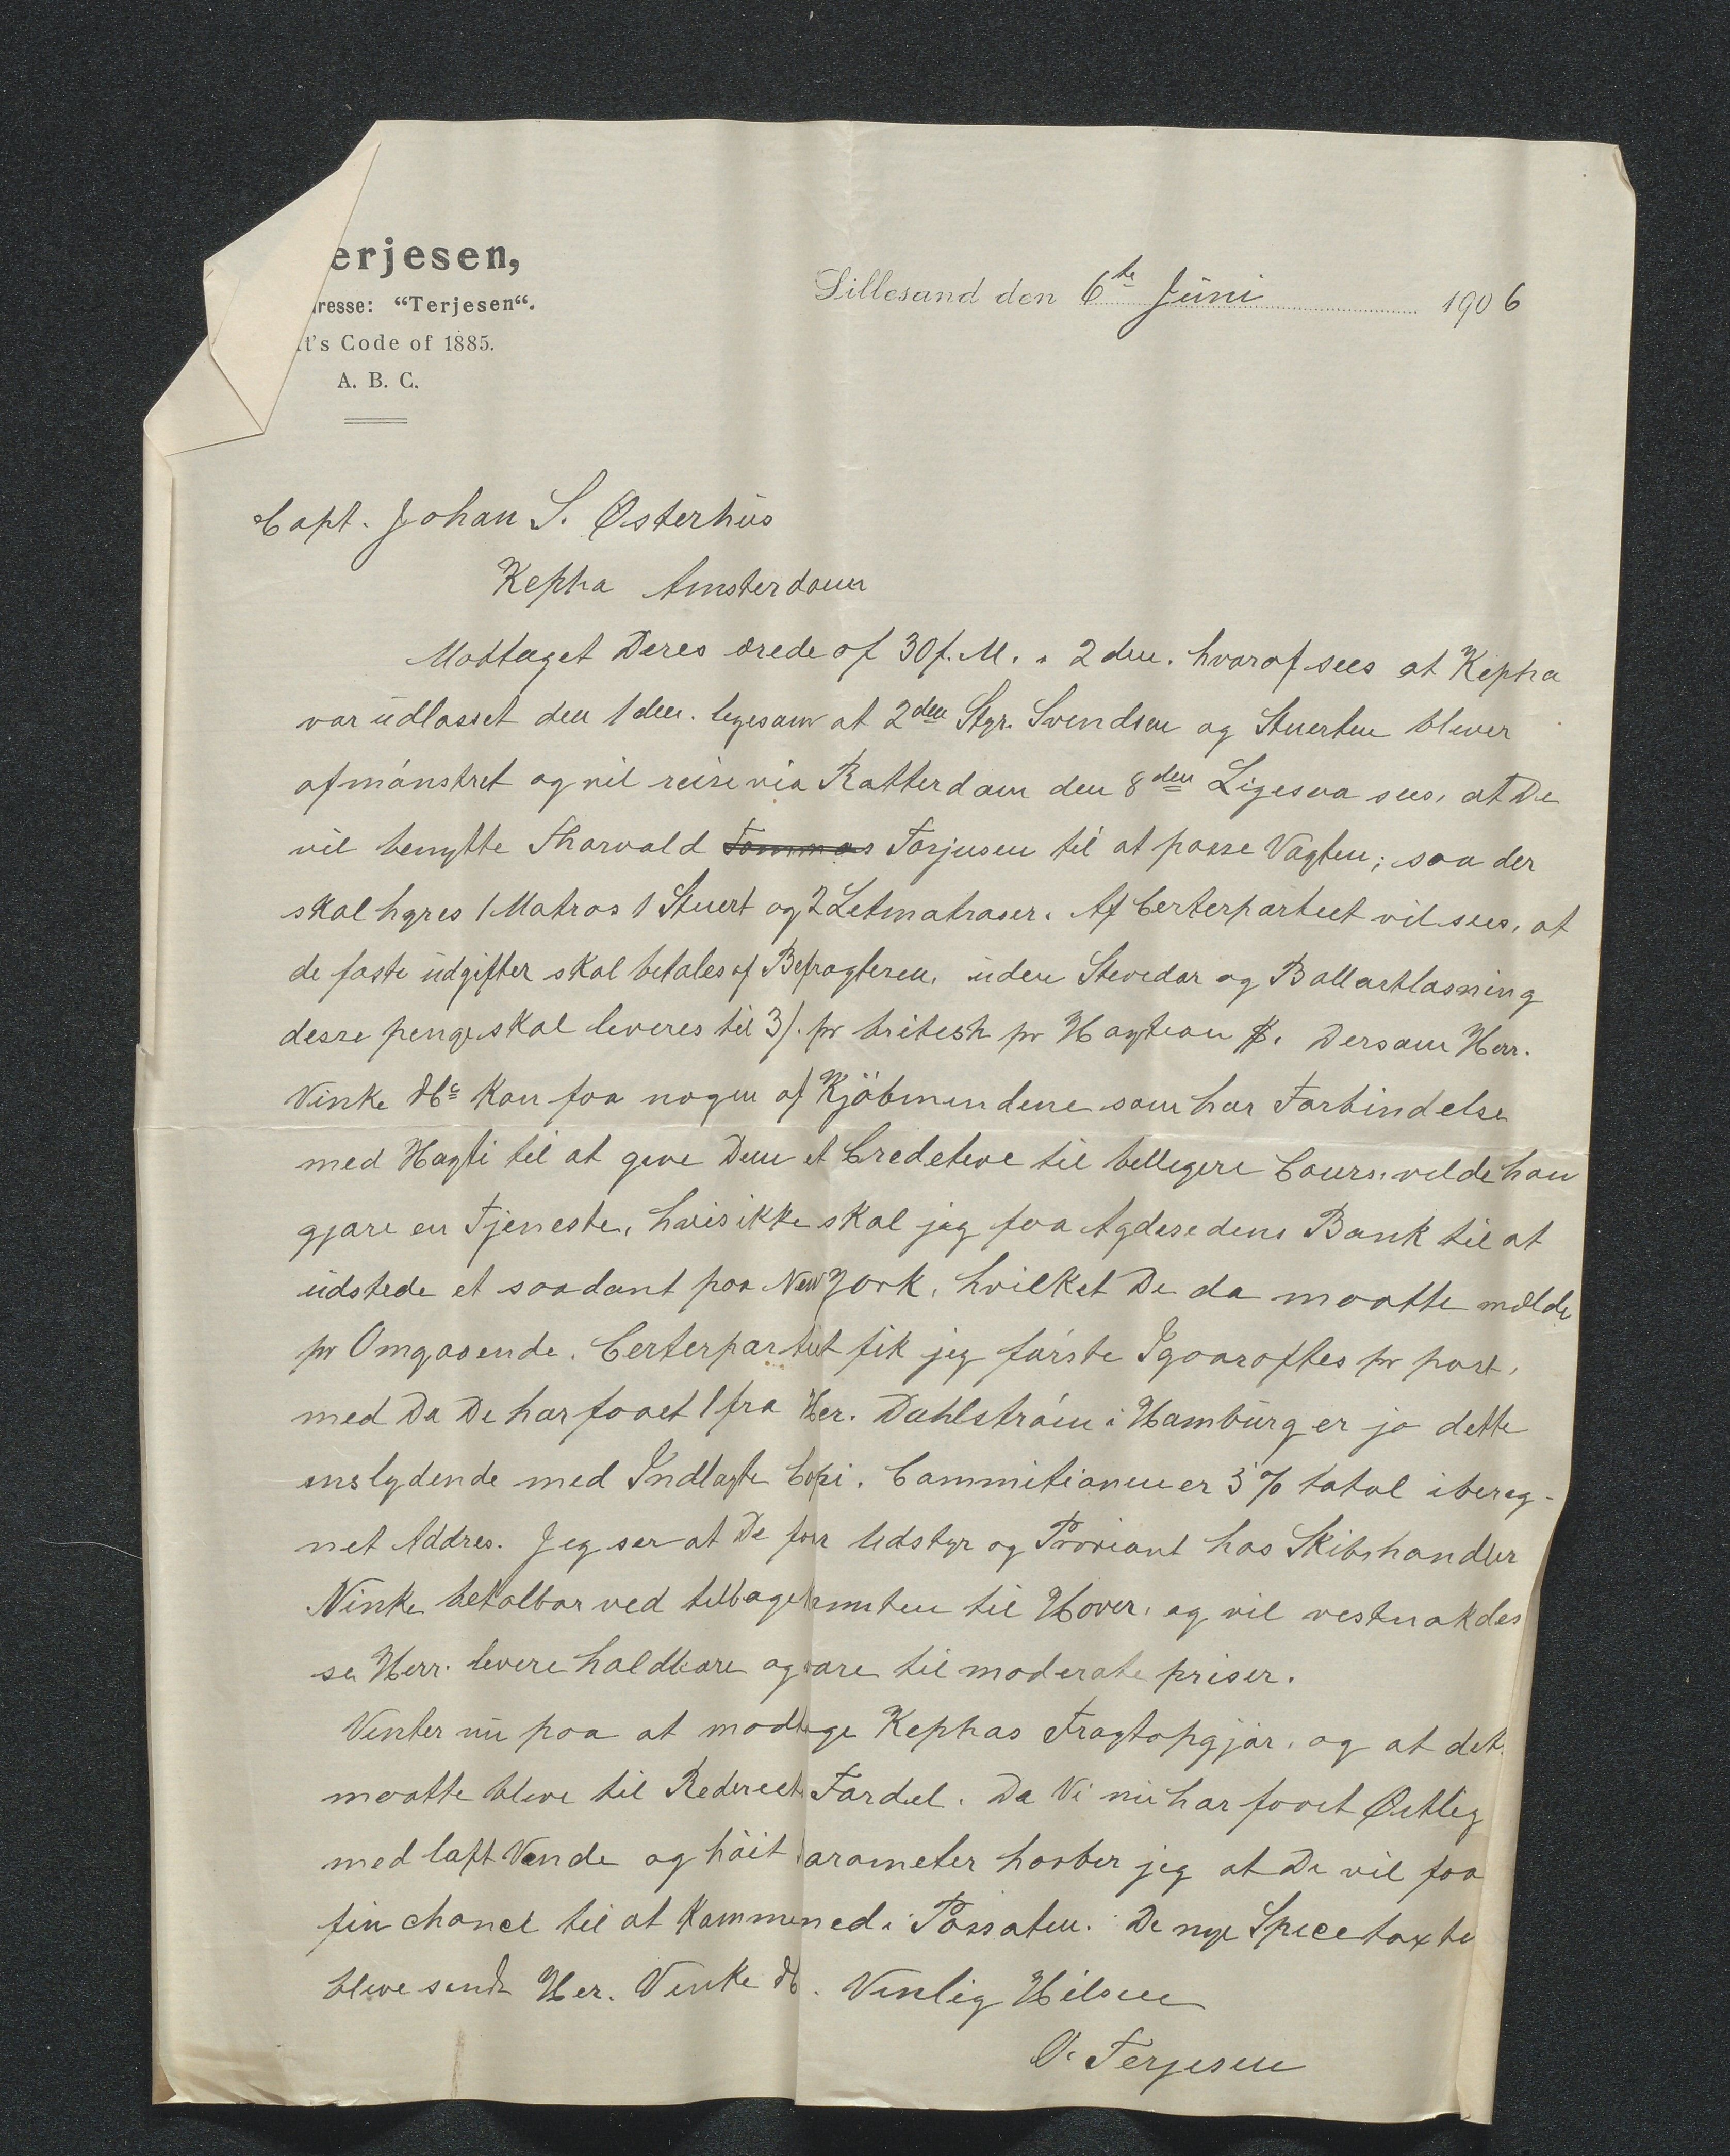 erjesen,
resse: “Terjesen“.
t's Code of 1885.
A. B. C.
Lillesand den 6te Juni 1906
Capt. Johan S. Østerhus
Kepha Amsterdam
Modtaget Deres ærede af 30 f. M. & 2 den. hvoraf sees at Kepha
var udlosset den 1 den. ligesom at 2den Styr. Svendsen og Stuerten bliver
afmønstret og vil reise via Rotterdam den 8den Ligesaa sees, at De
vil benytte Thorvald Tommas Torjusen til at passe Vagten; saa der
skal hyres 1 Matros 1 Stuert og 2 Letmatroser. Af Certerpartiet vil sees, at
de faste udgifter skal betales af Befragteren, uden Stevedor og Ballastlosning
desse penge skal leveres til 3/. pr british pr Haytian $. Dersom Herr.
Vinke & Co kan faa nogen af Kjøbmendene som har Forbindelse
med Hayti til at give Dem et Credetive til billigere Cours, vilde han
gjøre en Tjeneste, hvis ikke skal jeg faa Agdesidens Bank til at
udstede et saadant paa New York, hvilket De da maatte melde
pr Omgaaende. Certerpartiet fik jeg første Igaaraftes pr post,
med Da De har faaet 1 fra Her. Dahlstrøm i Hamburg er jo dette
enslydende med Indlagte Copi. Commitionen er 5% total ibereg-
net Addres. Jeg ser at De faar Udstyr og Proviant hos Skibshandler
Vinke betalbar ved tilbagekomsten til Havr, og vil vestnok des
se Herr. levere holdbare og are til moderate priser.
Venter nu paa at modtage Kephas Fragtopgjør, og at det
maatte blive til Rederiets Fordel. Da Vi nu har faaet Østlig
med laft Vende og høit arometer haaber jeg at De vil faa
fin chance til at komme ned i Passaten. De nye Specetaxte
blive sendt Her. Vinke & Co. Venlig Hilsen
O. Terjesen